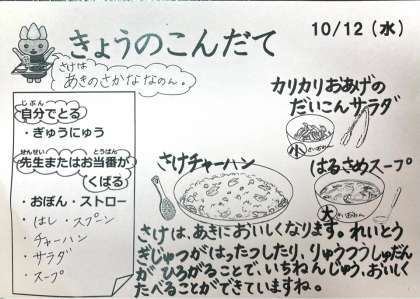 10/12（水）
きょうのこんだて
さけは
あきのさかななのん。
カリカリおあげの
だいこんサラダ
小
さいおわん
じぶん
自分でとる
・ぎゅうにゅう
せんせい とうばん
先生またはお当番が
くばる
・おぼん・ストロー
・はし・スプーン
・チャーハン
・サラダ
・スープ
さけチャーハン
はるさめスープ
大
さいおわん
さけは、あきにおいしくなります。れいとう
ぎじゅつがはったつしたり、りゅうつうしゅだん
が ひろがることで、いちねんじゅう、おいしく
たべることができていますね。